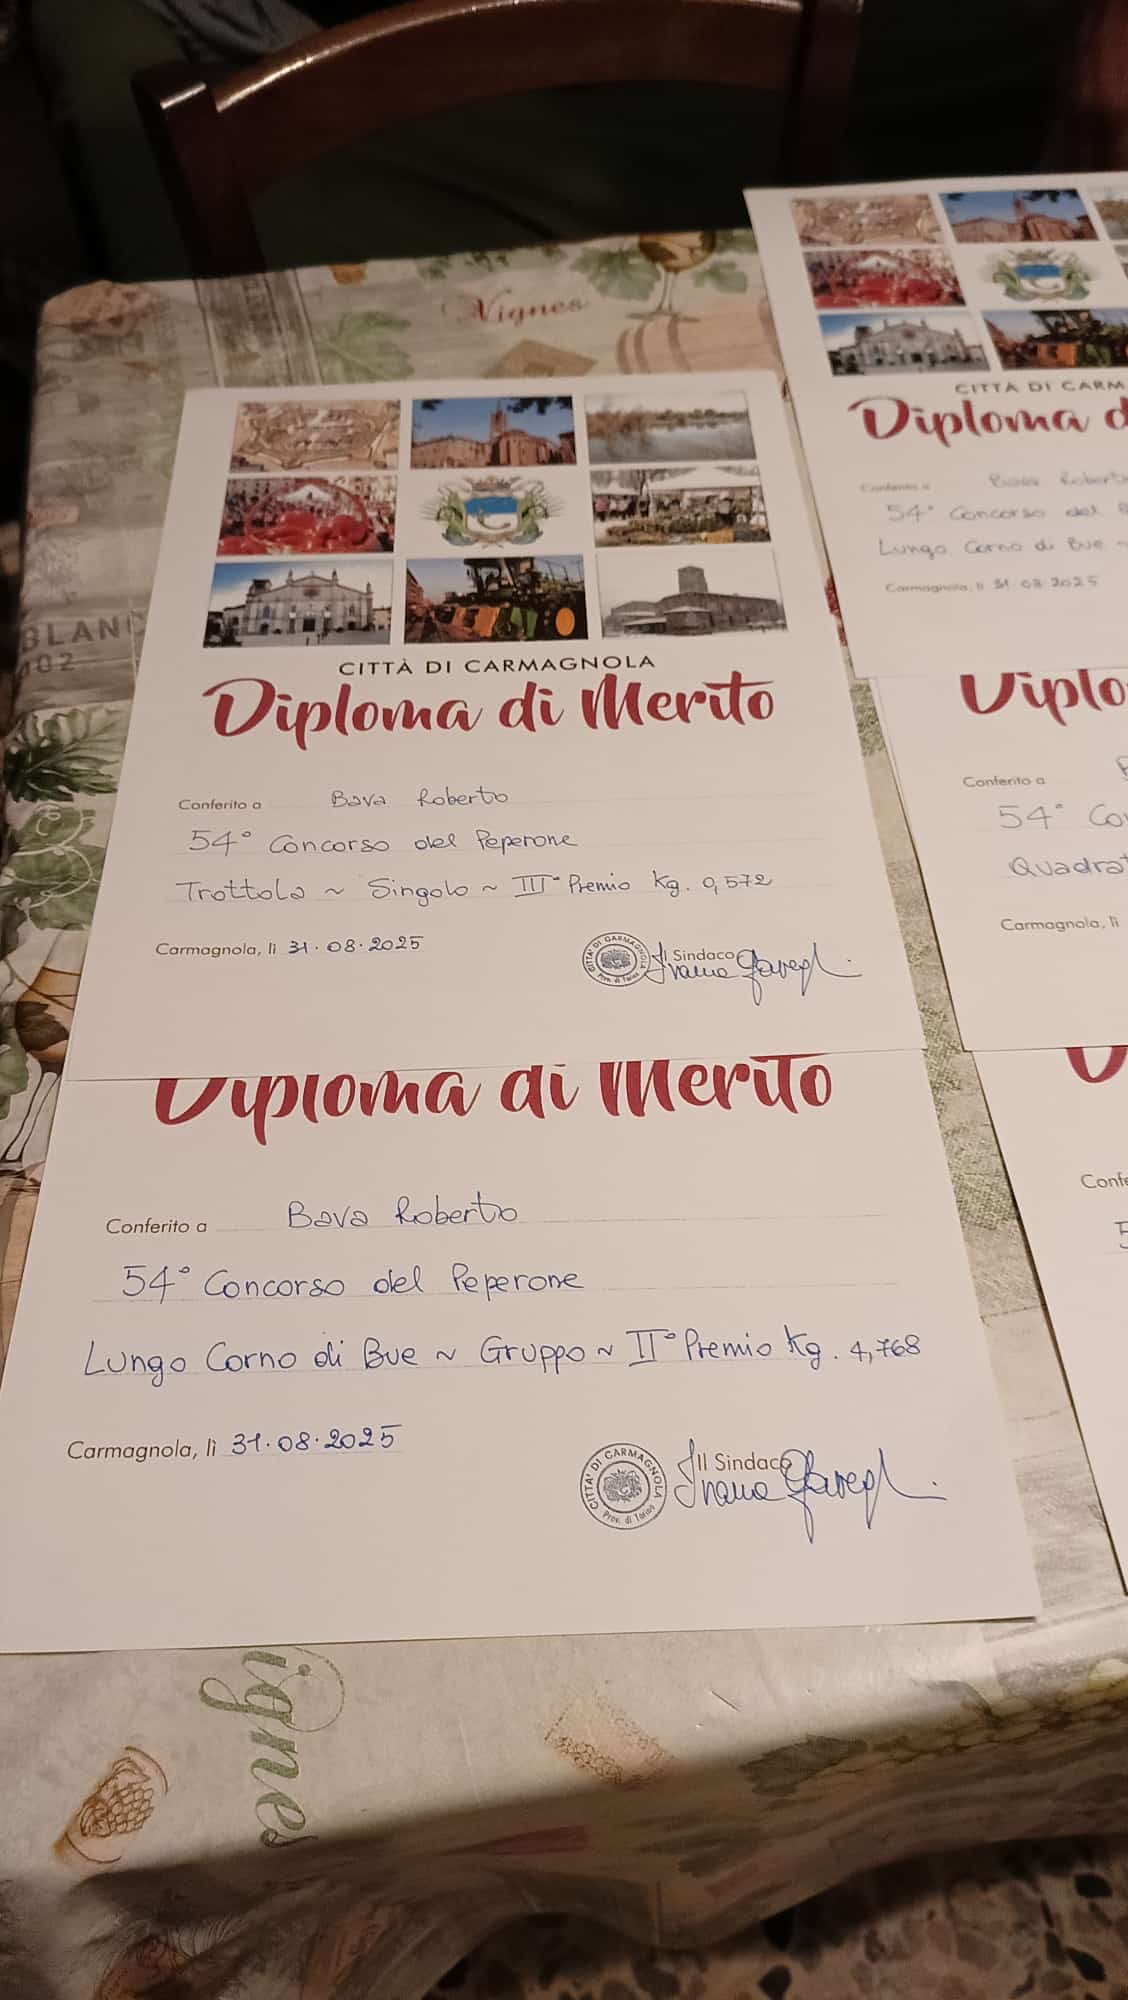 Vignes
CITTÀ DI CARMAGNOLA
Diploma di Merito
Conferito a Bava Roberto
54° Concorso del Peperone
Trottola ~ Singolo ~ III° Premio Kg. 0,572
Carmagnola, lì 31.08.2025
Il Sindaco
CITTA' DI CARMAGNOLA
Prov. di Torino
Diploma di Merito
Conferito a Bava Roberto
54° Concorso del Peperone
Lungo Corno di Bue ~ Gruppo ~ II° Premio Kg. 4,768
Carmagnola, lì 31.08.2025
CITTA' DI CARMAGNOLA
Prov. di Torino
Il Sindaco
CITTÀ DI CARM
Diploma d
Conferito a Bava Roberto
54° Concorso del
Lungo Corno di Bue ~
Carmagnola, lì 31.08.2025
Diplo
Conferito a
54° Co
Quadrat
Carmagnola, lì
D
Confe
5
BLANC
02
ignes